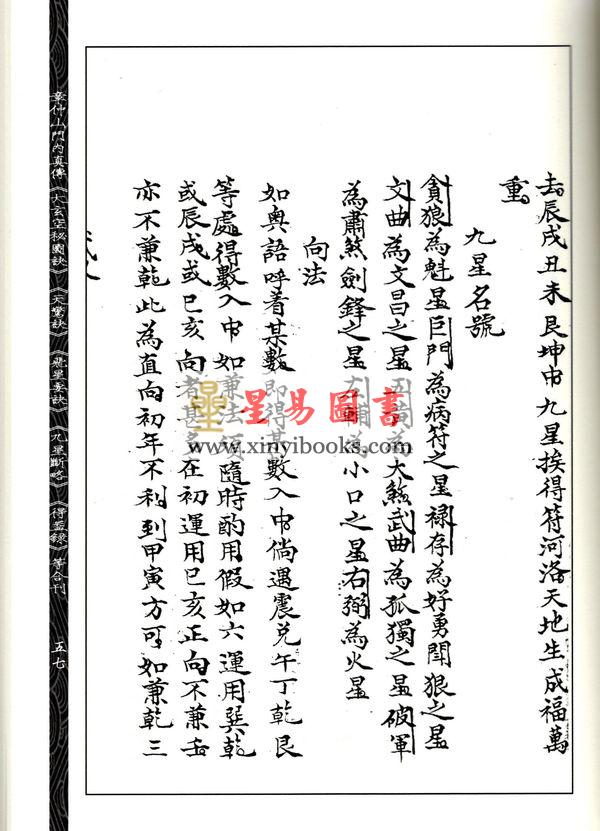 去辰戌丑未艮坤中九星挨得符河洛天地生成福萬
重
九星名號
貪狼為魁星巨門為病符之星祿存為好勇鬪狠之星
文曲為文昌之星五黃為大煞武曲為孤獨之星破軍
為肅煞劍鋒之星左輔為小口之星右弼為火星
向法
如奧語呼着某數即得某數入中倘遇震兌午丁乾艮
等處得數入中如兼法須隨時酌用假如六運用巽乾
或辰戌或巳亥向者甚多在初運用巳亥正向不兼壬
亦不兼乾此為直向初年不利到甲寅方可如兼乾三
章仲山門內真傳《大玄空秘圖訣》《天驚訣》《飛星要訣》《九星斷略》《得益錄》等合刊
五七
星易圖書
www.xinyibooks.com